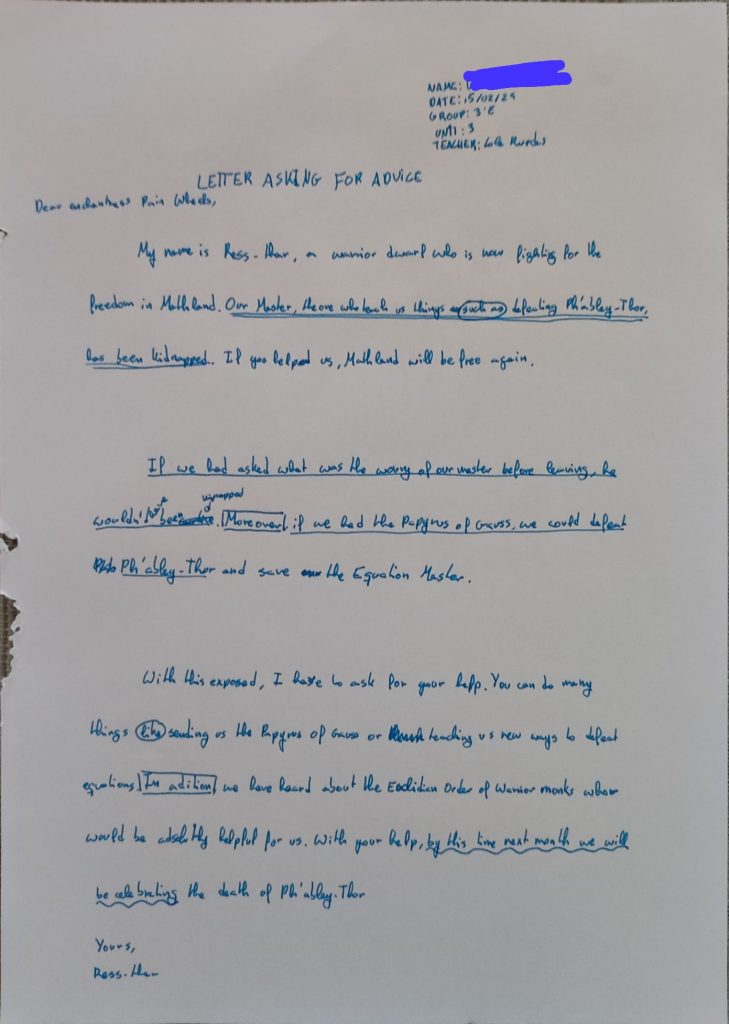 NAME:
DATE: 15/02/24
GROUP: 3ºE
UNIT: 3
TEACHER: Lola
LETTER ASKING FOR ADVICE
Dear Pain Wheels,
My name is Ress-thar, a warrior dwarf who is now fighting for the
freedom in Mathland. Our Master, the one who teach us things such as defeating Ph'abley-Thor,
has been kidnapped. If you helped us, Mathland will be free again.
If we had asked what was the worry of our master before leaving, he
wouldn't have been kidnapped. Moreover, if we had the Papyrus of Gauss, we could defeat
Ph'abley-Thor and save the Equation Master.
With this exposed, I have to ask for your help. You can do many
things like sending us the Papyrus of Gauss or teaching us new ways to defeat
equations. In adition, we have heard about the Euclidian Order of Warrior monks whom
would be absolutly helpful for us. With your help, by this time next month we will
be celebrating the death of Ph'abley-Thor
Yours,
Ress-thar